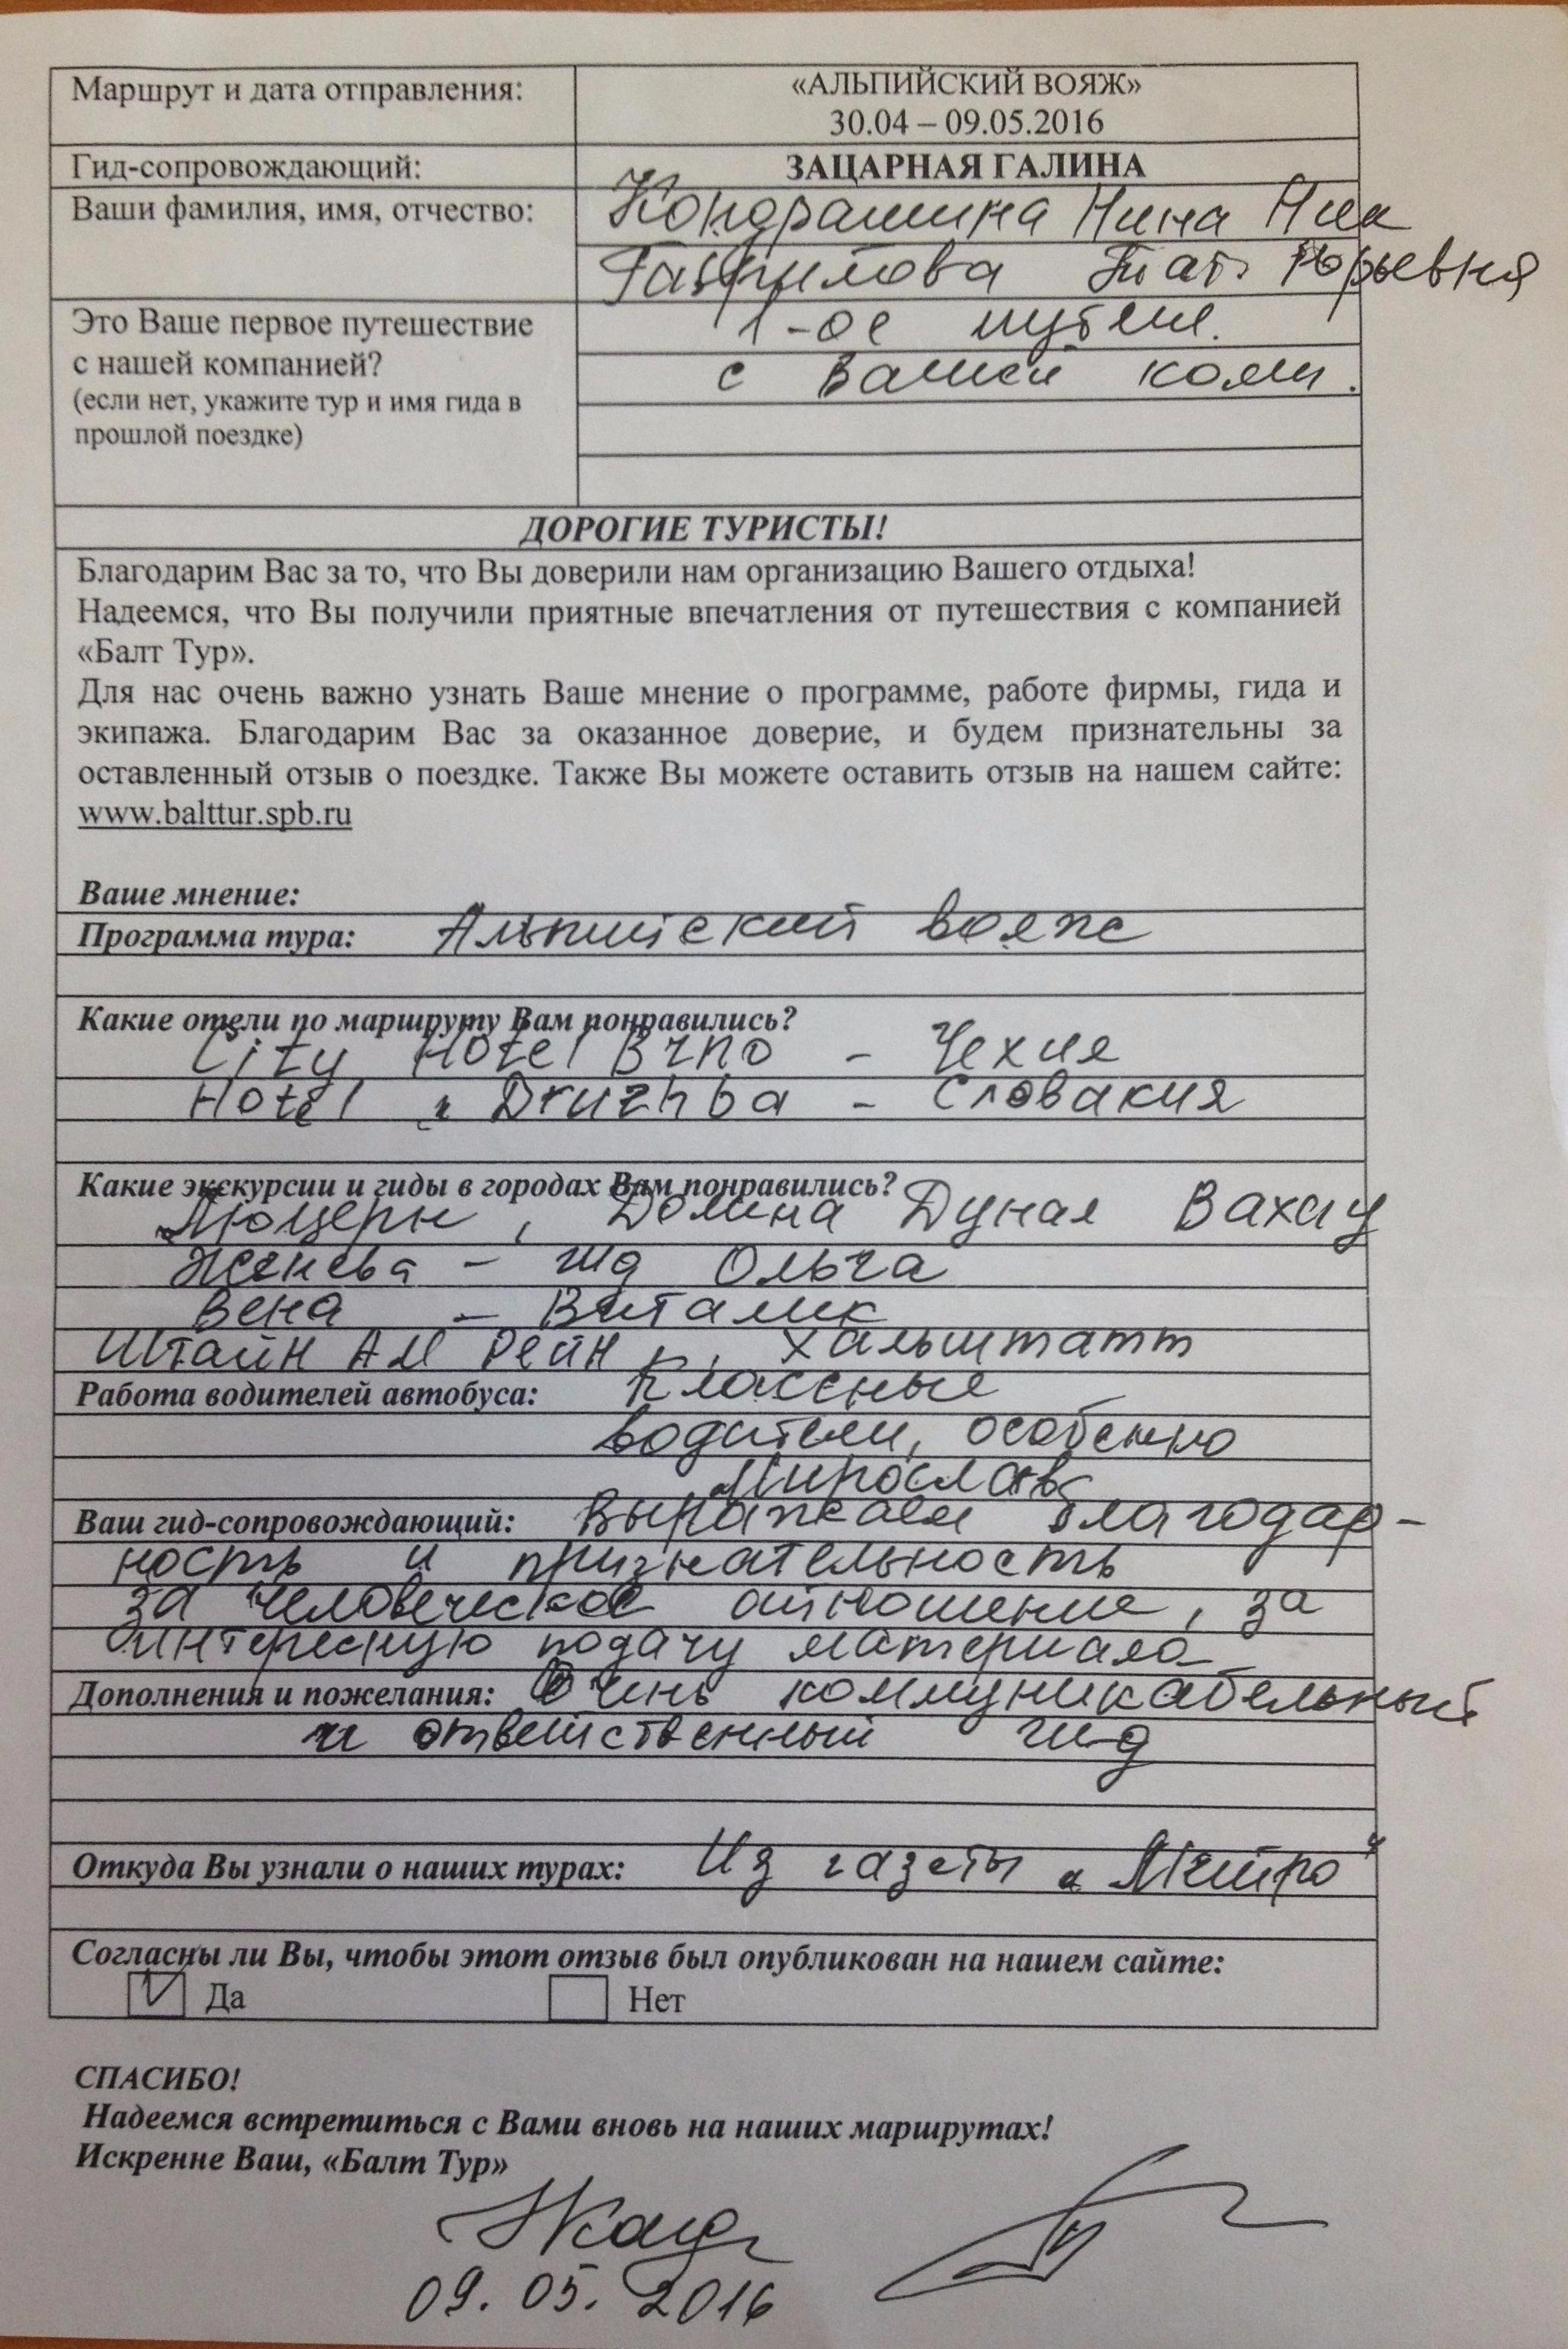 Маршрут и дата отправления:
«АЛЬПИЙСКИЙ ВОЯЖ»
30.04 – 09.05.2016
Гид-сопровождающий:
ЗАЦАРНАЯ ГАЛИНА
Ваши фамилия, имя, отчество:
Кондрашина Нина Ник
Гаврилова Тат. Юрьевна
Это Ваше первое путешествие
с нашей компанией?
(если нет, укажите тур и имя гида в
прошлой поездке)
1-ое путеш.
с Вашей комп.
ДОРОГИЕ ТУРИСТЫ!
Благодарим Вас за то, что Вы доверили нам организацию Вашего отдыха!
Надеемся, что Вы получили приятные впечатления от путешествия с компанией
«Балт Тур».
Для нас очень важно узнать Ваше мнение о программе, работе фирмы, гида и
экипажа. Благодарим Вас за оказанное доверие, и будем признательны за
оставленный отзыв о поездке. Также Вы можете оставить отзыв на нашем сайте:
www.balttur.spb.ru
Ваше мнение:
Программа тура: Альпийский вояж
Какие отели по маршруту Вам понравились?
City Hotel Brno - Чехия
Hotel "Druzhba - Словакия
Какие экскурсии и гиды в городах Вам понравились?
Люцерн, Долина Дуная Вахау
Женева - гид Ольга
Вена - Виталик
Штайн АМ Рейн, Хальштатт
Работа водителей автобуса: Классные
водители, особенно
Мирослав
Ваш гид-сопровождающий: Выражаем благодар-
ность и признательность
за человеческое отношение, за
интересную подачу материала
Дополнения и пожелания: Очень коммуникабельный
и ответственный гид
Откуда Вы узнали о наших турах: Из газеты "Метро"
Согласны ли Вы, чтобы этот отзыв был опубликован на нашем сайте:
Да Нет
СПАСИБО!
Надеемся встретиться с Вами вновь на наших маршрутах!
Искренне Ваш, «Балт Тур»
09.05.2016